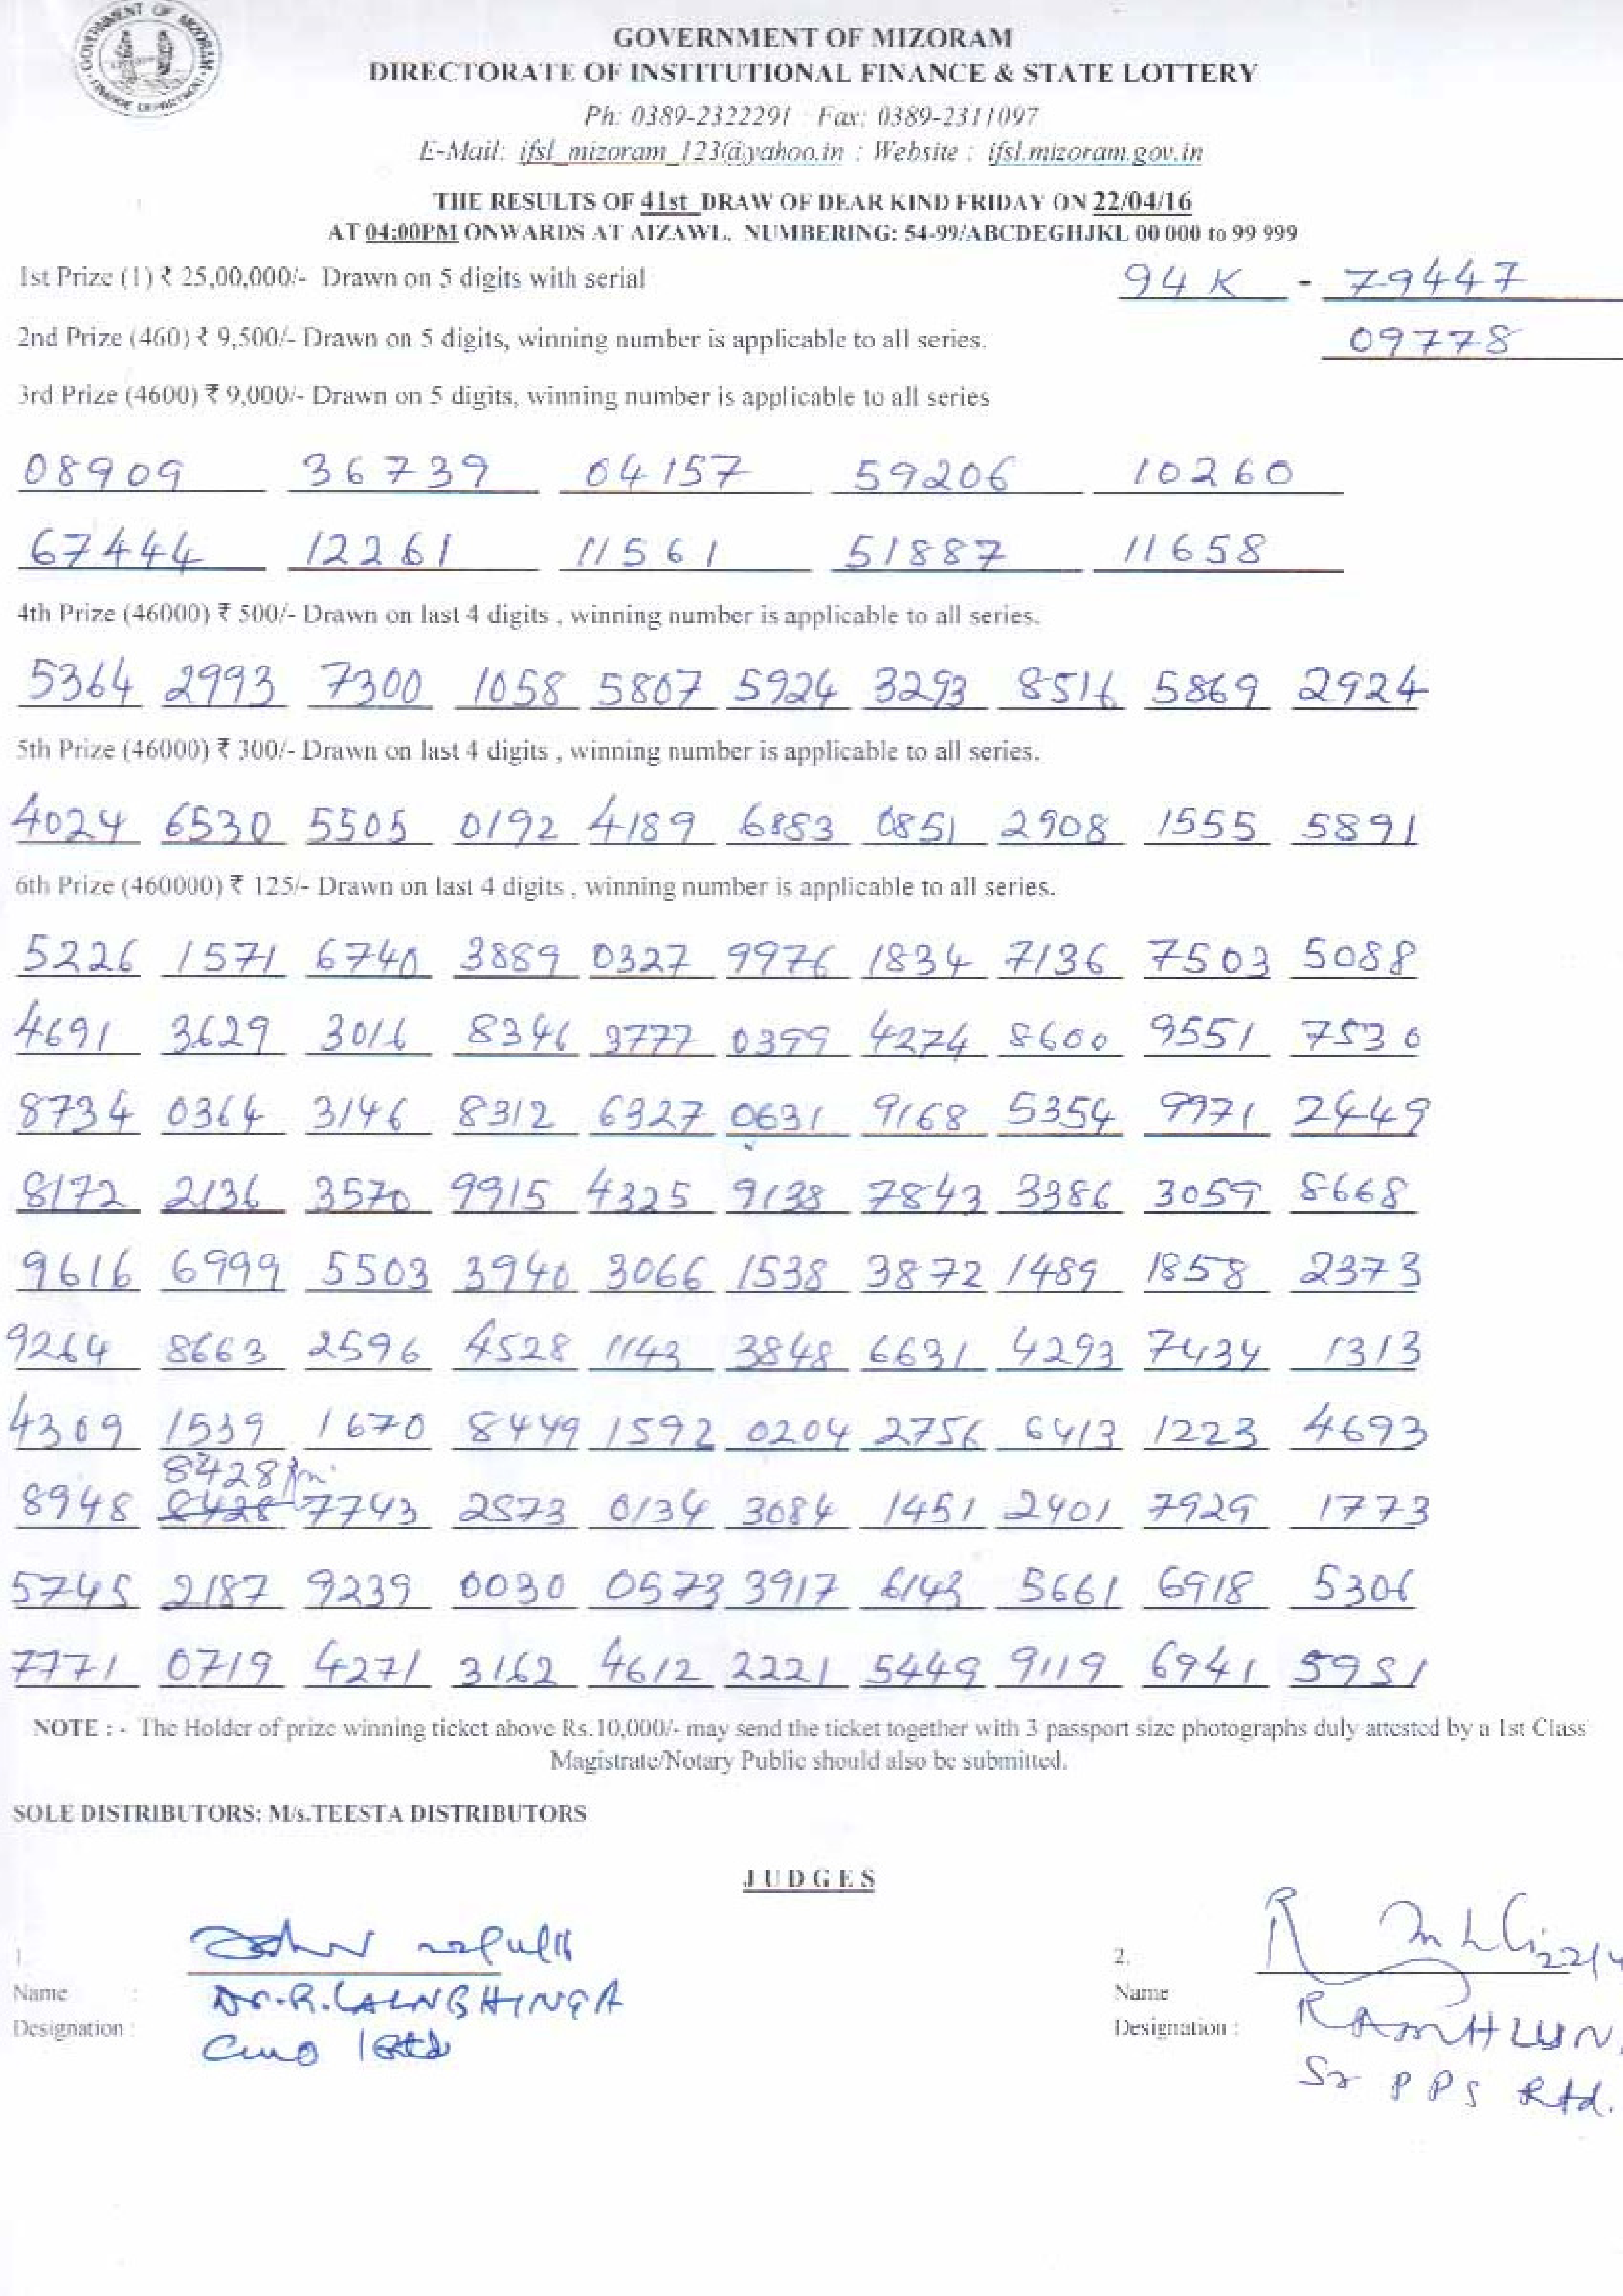 GOVERNMENT OF MIZORAM
GOVERNMENT OF MIZORAM
FINANCE DEPARTMENT
DIRECTORATE OF INSTITUTIONAL FINANCE & STATE LOTTERY
Ph: 0389-2322291 Fax: 0389-2311097
E-Mail: ifsl_mizoram_123@yahoo.in : Website : ifsl.mizoram.gov.in
THE RESULTS OF 41st DRAW OF DEAR KIND FRIDAY ON 22/04/16
AT 04:00PM ONWARDS AT AIZAWL. NUMBERING: 54-99/ABCDEGHJKL 00 000 to 99 999
1st Prize (1) ₹ 25,00,000/- Drawn on 5 digits with serial 94 K - 79447
2nd Prize (460) ₹ 9,500/- Drawn on 5 digits, winning number is applicable to all series. 09778
3rd Prize (4600) ₹ 9,000/- Drawn on 5 digits, winning number is applicable to all series
08909 36739 04157 59206 10260
67444 12261 11561 51887 11658
4th Prize (46000) ₹ 500/- Drawn on last 4 digits , winning number is applicable to all series.
5364 2993 7300 1058 5807 5924 3293 8516 5869 2924
5th Prize (46000) ₹ 300/- Drawn on last 4 digits , winning number is applicable to all series.
4024 6530 5505 0192 4189 6883 0851 2908 1555 5891
6th Prize (460000) ₹ 125/- Drawn on last 4 digits , winning number is applicable to all series.
5226 1571 6740 3889 0327 9976 1834 7136 7503 5088
4691 3629 3016 8346 3777 0399 4274 8600 9551 7530
8734 0364 3146 8312 6327 0631 9168 5354 9971 2449
8172 2136 3570 9915 4325 9138 7843 3386 3059 8668
9616 6999 5503 3940 3066 1538 3872 1489 1858 2373
9264 8663 2596 4528 1143 3848 6631 4293 7434 1313
4309 1539 1670 8449 1592 0204 2756 6413 1223 4693
8428
8948 8428 7743 2573 0134 3084 1451 2401 7929 1773
5745 2187 9239 0030 0573 3917 6143 5661 6918 5306
7771 0719 4271 3162 4612 2221 5449 9119 6941 5951
NOTE : - The Holder of prize winning ticket above Rs.10,000/- may send the ticket together with 3 passport size photographs duly attested by a 1st Class
Magistrate/Notary Public should also be submitted.
SOLE DISTRIBUTORS: M/s.TEESTA DISTRIBUTORS
JUDGES
1.
Name : Dr. R. LALNGHINGA
Designation : CMO
2. 22/4
Name
Designation : RAMHLUN
Sr PPS Rtd.